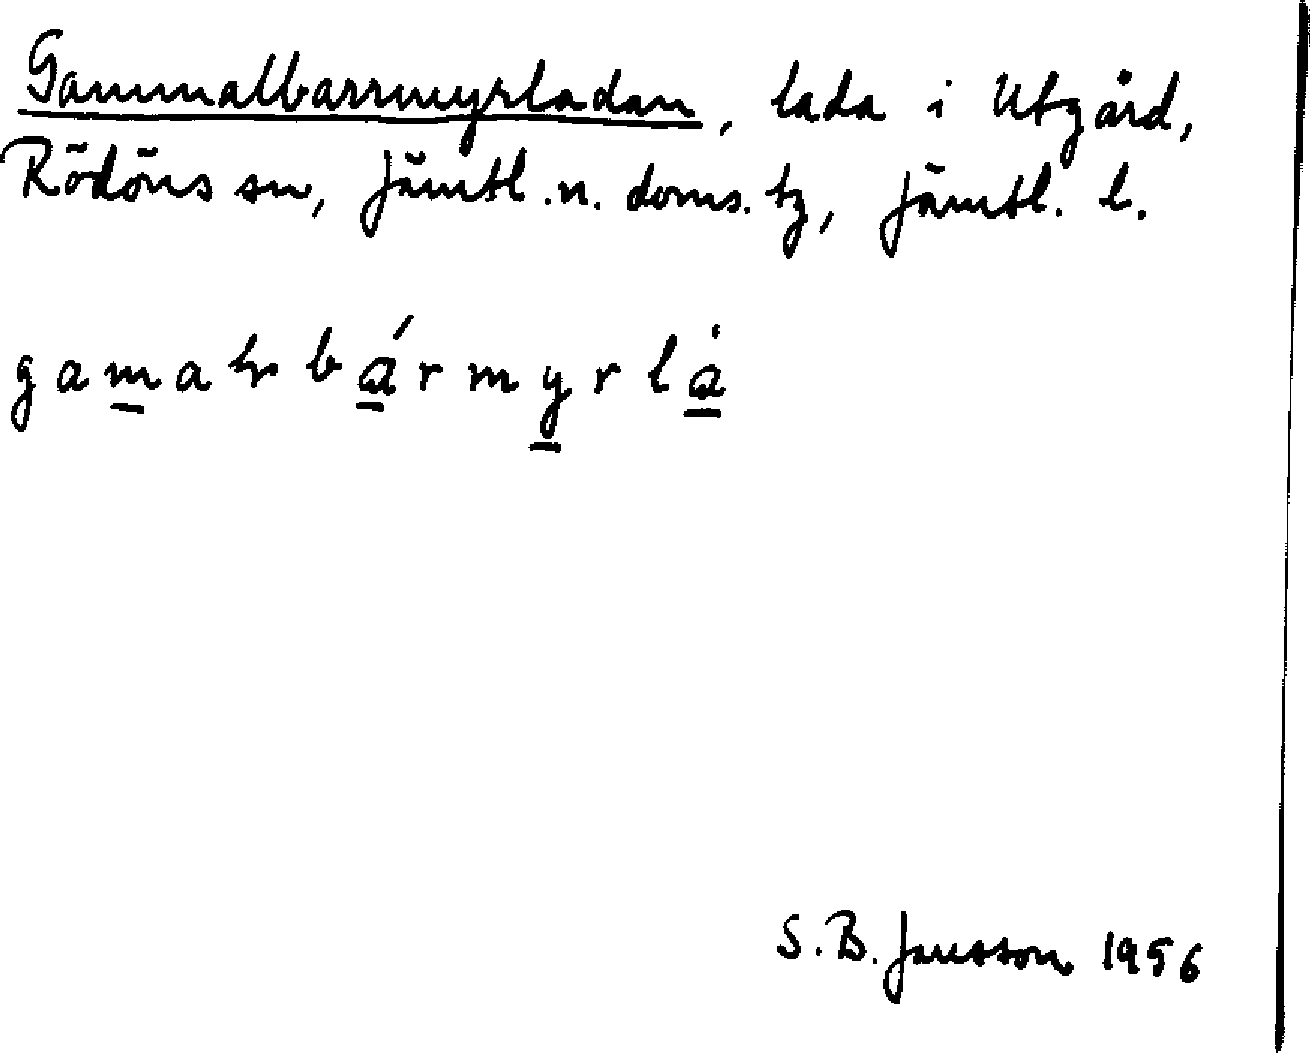 Gammalbarrmyrladan, lada i Utgård,
Rödöns sn, Jämtl. n. doms. tg, Jämtl. l.
S. B. Jansson 1956